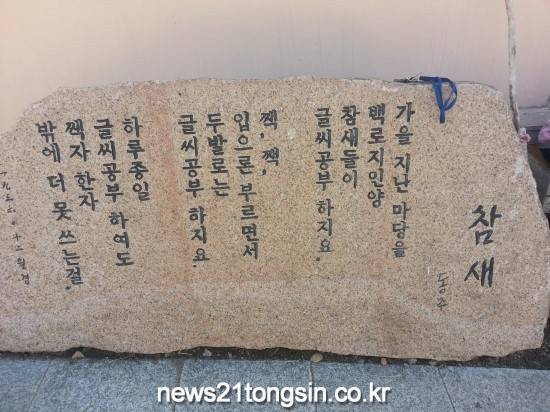 참새
동주
가을 지난 마당을
백로지인양
참새들이
글씨공부 하지요.
짹, 짹,
입으론 부르면서
두발로는
글씨공부 하지요.
하루종일
글씨공부 하여도
짹자 한자
밖에 더 못 쓰는걸.
十二월
news21tongsin.co.kr